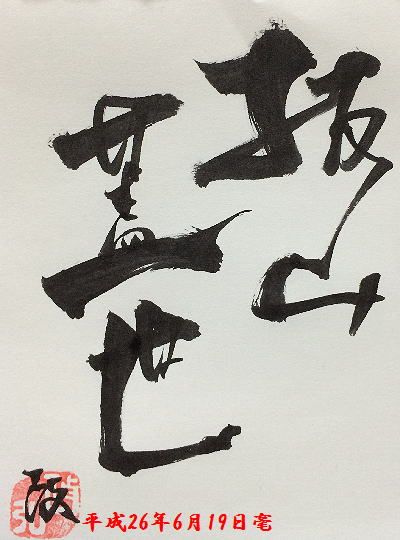 抜山
蓋世
平成26年6月19日毫